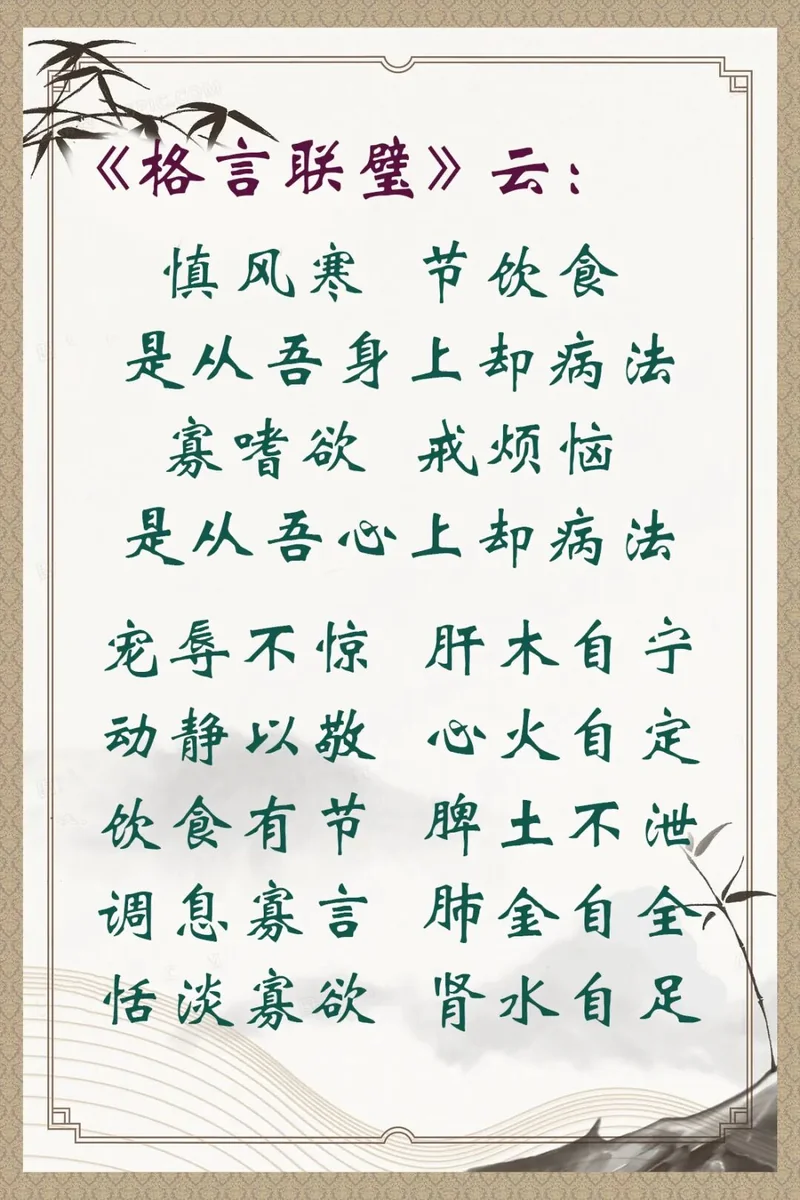 《格言联璧》云：
慎风寒 节饮食
是从吾身上却病法
寡嗜欲 戒烦恼
是从吾心上却病法
宠辱不惊 肝木自宁
动静以敬 心火自定
饮食有节 脾土不泄
调息寡言 肺金自全
恬淡寡欲 肾水自足